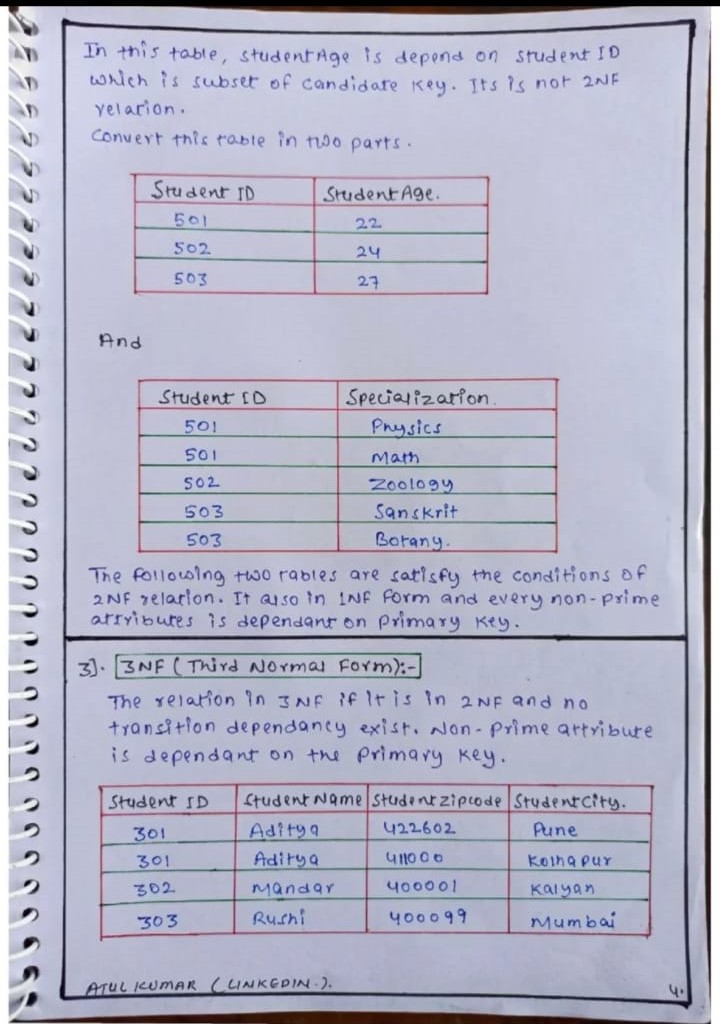 In this table, student Age is depend on student ID
which is subset of candidate key. Its is not 2NF
relation.
Convert this table in two parts.
Student ID Student Age.
501 22
502 24
503 27
And
Student ID Specialization.
501 Physics
501 Math
502 Zoology
503 Sanskrit
503 Botany.
The following two tables are satisfy the conditions of
2NF relation. It also in 1NF form and every non-prime
attributes is dependant on primary key.
3]. 3NF (Third Normal Form):-
The relation in 3NF if it is in 2NF and no
transition dependancy exist. Non-prime attribute
is dependant on the primary key.
Student ID Student Name Student zipcode Student City.
301 Aditya 422602 Pune
301 Aditya 411000 Kolhapur
302 Mandar 400001 Kalyan
303 Rushi 400099 Mumbai
ATUL KUMAR (LINKEDIN.).
4.